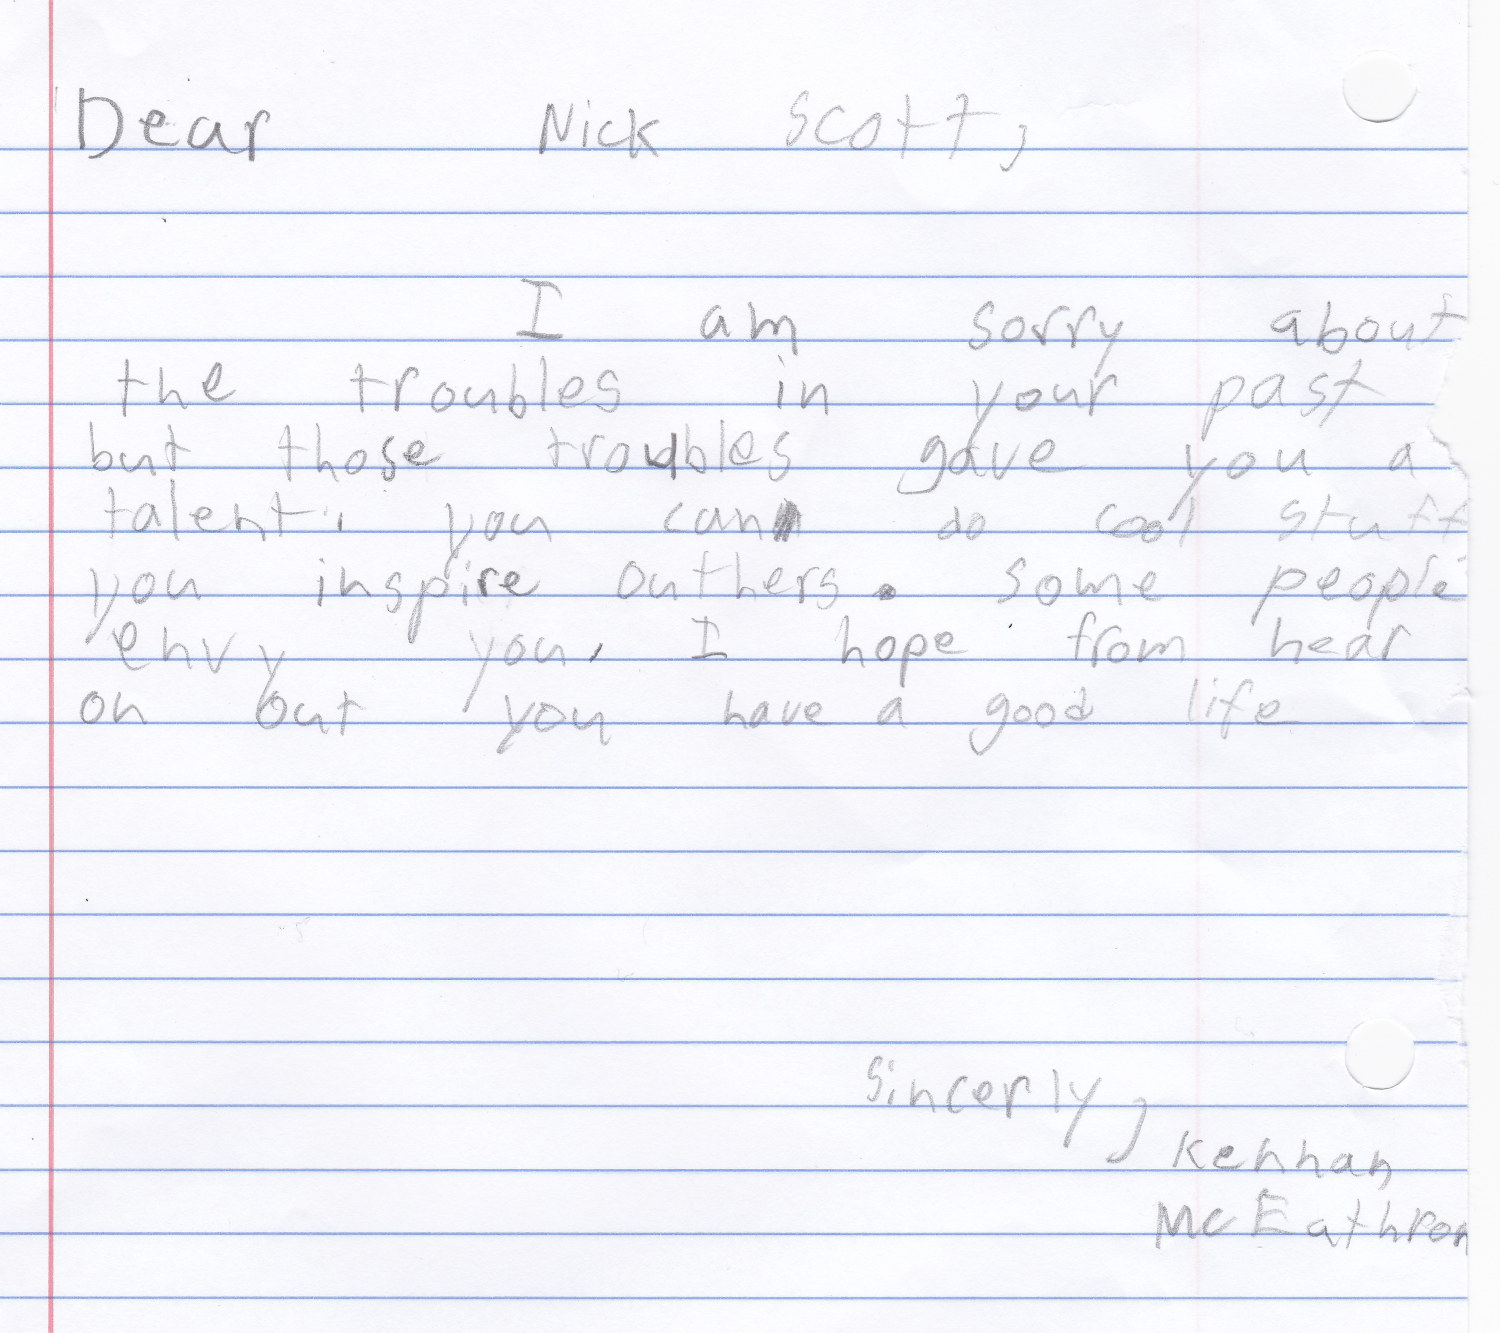 Dear Nick Scott,
I am sorry about
the troubles in your past
but those troubles gave you a
talent. you can do cool stuff
you inspire outhers. some people
envy you. I hope from hear
on out you have a good life
Sincerly,
Kennan
McEathron